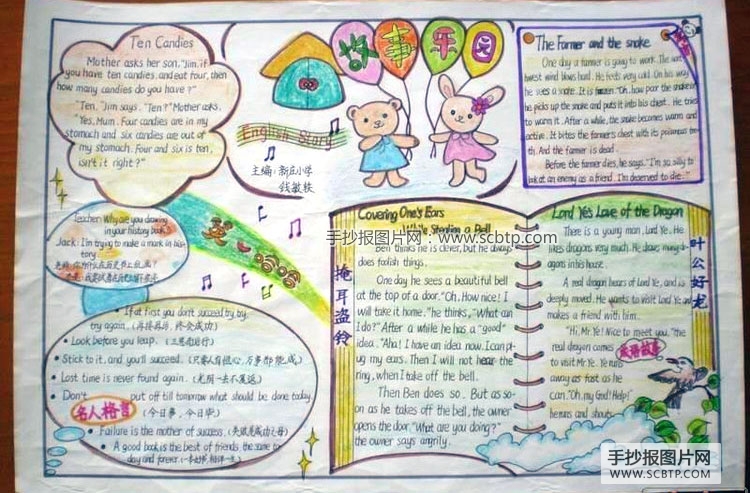 Ten Candies
Mother asks her son, "Jim, if
you have ten candies, and eat four, then
how many candies do you have?"
"Ten." Jim says. "Ten?" Mother asks.
"Yes, Mum. Four candies are in my
stomach and six candies are out of
my stomach. Four and six is ten,
isn't it right?"
故事乐园
English Story
主编：新庄小学
钱敏枝
The Farmer and the snake
One day a farmer is going to work. The nor
thwest wind blows hard. He feels very cold. On his way
he sees a snake. It is frozen. "Oh, how poor the snake is!"
he picks up the snake and puts it into his chest. He tries
to warm it. After a while, the snake becomes warm and
active. It bites the farmer's chest with its poisonous tee
th. And the farmer is dead.
Before the farmer dies, he says, "I'm so silly to
look at an enemy as a friend. I'm deserved to die."
Teacher: Why are you drawing
in your history book?
Jack: I'm trying to make a mark in his-
tory.
英心哈哈
If at first you don't succeed try by,
try again. (再接再厉，终会成功)
Look before you leap. (三思而后行)
Stick to it, and you'll succeed. (只要人有恒心，万事都能成)
Lost time is never found again. (光阴一去不复返)
Don't put off till tomorrow what should be done today.
名人格言 (今日事，今日毕)
Failure is the mother of success. (失败是成功之母)
A good book is the best of friends, the same to-
day and forever.
Covering One's Ears
While Stealing a Bell
掩耳盗铃
Ben thinks he is clever, but he always
does foolish things.
One day he sees a beautiful bell
at the top of a door. "Oh, How nice! I
will take it home." he thinks, "What can
I do?" After a while he has a "good"
idea. "Aha! I have an idea now. I can pl-
ug my ears. Then I will not hear the
ring, when I take off the bell.
Then Ben does so. But as so-
on as he takes off the bell, the owner
opens the door. "What are you doing?"
the owner says angrily.
Lord Ye's Love of the Dragon
叶公好龙
There is a young man, Lord Ye. He
likes dragons very much. He draws many d-
ragons in his house.
A real dragon hears of Lord Ye, and is
deeply moved. He wants to visit Lord Ye and
makes a friend with him.
"Hi, Mr Ye! Nice to meet you." the
real dragon comes
to visit Mr Ye. Ye runs
away as fast as he
can. "Oh, my God! Help!"
he runs and shouts.
成语故事
手抄报图片网：www.scbtp.com
手抄报图片网
WWW.SCBTP.COM